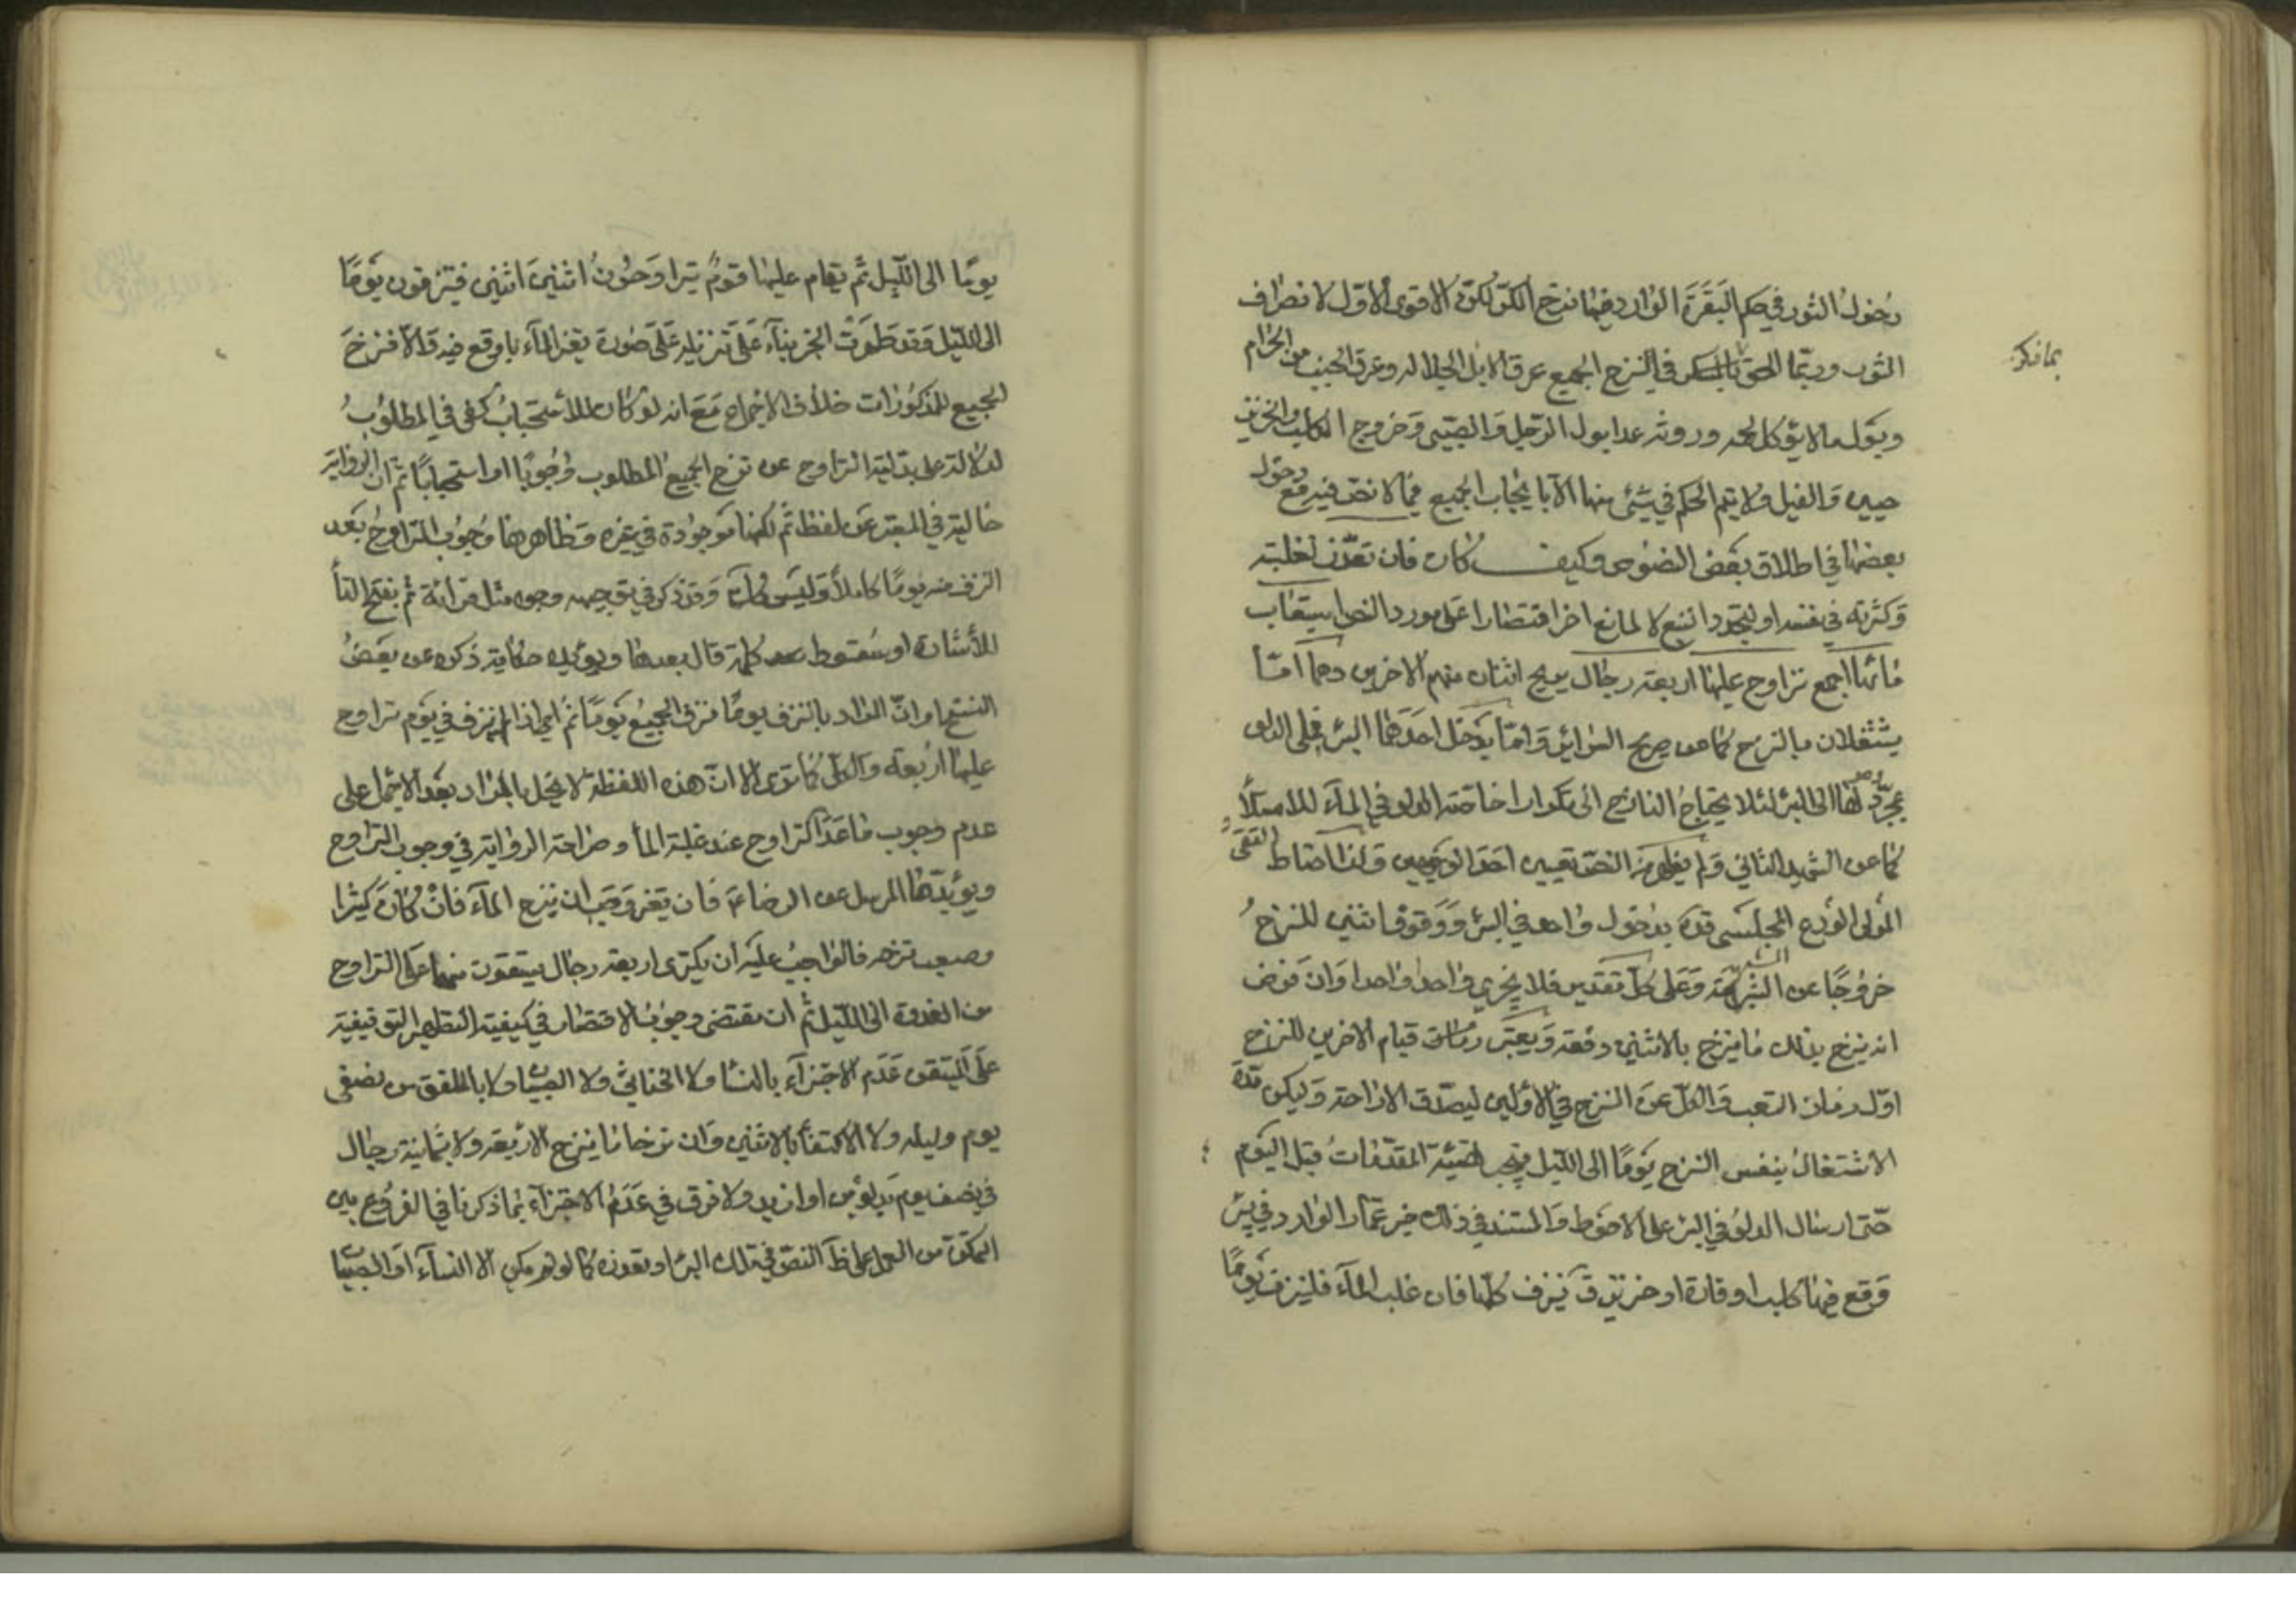 دخول الثور في حكم البقرة الوارد فيها نزح الكر لكن الاقوى الاول لانصراف
بما ذكر
الثور وربما الحق بالمسكر في النزح الجميع عرق الابل الجلالة وعرق الجنب من الحرام
وبول ما لا يؤكل لحمه وروثه عدا بول الرجل والصبي وخروج الكلب والخنزير
حيين والفيل ولا يتم الحكم في شئ منها الا بايجاب الجميع فيما لا نص فيه مع دخول
بعضها في اطلاق بعض النصوص وكيف كان فان تعذر لغلبته
وكثرته في نفسه او لتجدد النبع لا لمانع اخر اقتصارا على مورد النص استيعاب
مائها اجمع تراوح عليها اربعة رجال يريح اثنان منهم الاخرين وهما اما
يشتغلان بالنزح كما عن صريح السرائر واما يدخل احدهما البئر فيملى الدلو
لئلا يحتاج النازح الى تكرار اخاضته الدلو في الماء للامتلاء
كما عن الشهيد الثاني ولم يظهر من النص تعيين احد الوجهين ولذا احتاط التقى
المولى الورع المجلسي قده بدخول واحد في البئر ووقوف اثنين للنزح
خروجا عن الشبهة وعلى كل تقدير فلا يجزي واحد واحد وان فرض
انه ينزح بذلك ما ينزح بالاثنين دفعة ويعتبر زمان قيام الاخرين للنزح
اول زمان التعب والكل عن النزح في الاولين ليصدق الاراحة وليكن مدة
الاشتغال بنفس النزح يوما الى الليل فيجب تهيئة المقدمات قبل اليوم
حتى ارسال الدلو في البئر على الاحوط والمستند في ذلك خبر عمار الوارد في بئر
وقع فيها كلب او فارة او خنزير ق ينزف كلها فان غلب الماء فلينزف يوما
يوما الى الليل ثم يقام عليها قوم يتراوحون اثنين اثنين فينزفون يوما
الى الليل وقد طهرت الخبر بناء على تنزيله على صورة تغير الماء بما وقع فيه والا فنزح
الجميع للمذكورات خلاف الاجماع مع انه لو كان للاستحباب كفى في المطلوب
لدلالته على بدلية التراوح عن نزح الجميع المطلوب وجوبا او استحبابا ثم ان الرواية
خالية في المعتبر عن لفظ ثم لكنها موجودة في غيره وظاهرها وجوب التراوح بعد
النزف منه يوما كاملا وليس كذلك وقد ذكر في توجيهه وجوه مثل قرائة ثم بفتح الثاء
للأشارة او سقوط كلمة قال بعدها ويؤيده حكاية ذكره عن بعض
النسخ او ان المراد بالنزف يوما نزف الجميع يوما ثم اي اذا لم ينزف في يوم تراوح
عليها اربعة والكل كما ترى الا ان هذه اللفظة لا تخل بالمراد بعد الاجماع على
عدم وجوب ما عدا التراوح عند غلبة الماء وصراحة الرواية في وجوب التراوح
ويؤيدها المرسل عن الرضا ع فان تغير وجب ان ينزح الماء فان كان كثيرا
وصعب نزحه فالواجب عليه ان يكترى اربعة رجال يستقون منها على التراوح
من الغدوة الى الليل ثم ان مقتضى وجوب الاقتصار في كيفية التطهير التوقيفية
على المتيقن عدم الاجتزاء بالنساء ولا الخناثى ولا الصبيان ولا بالملفق من نصفى
يوم وليلة ولا الاكتفاء بالاثنين وان نزحا ما ينزح الاربعة ولا بثمانية رجال
في نصف يوم بدلوين او ازيد ولا فرق في عدم الاجتزاء بما ذكرنا في الفروع بين
التمكن من العمل على ظ النص في تلك البئر او تعذره كما لو لم يكن الا النساء او الصبيان